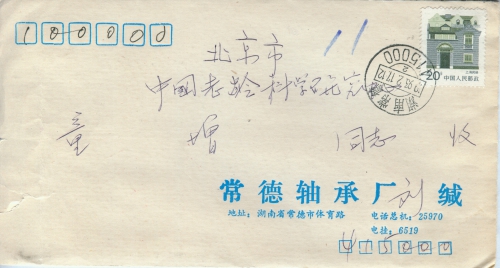 100000
11
北京市
中国老龄科学研究
童 增 同志 收
415000
湖南常德
20分 中国人民邮政
常德轴承厂刘缄
地址:湖南省常德市体育路
电话总机:25970
电挂:6519
415000